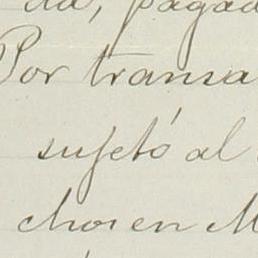 da, pagad
Por transa
sujetó al
chos en M